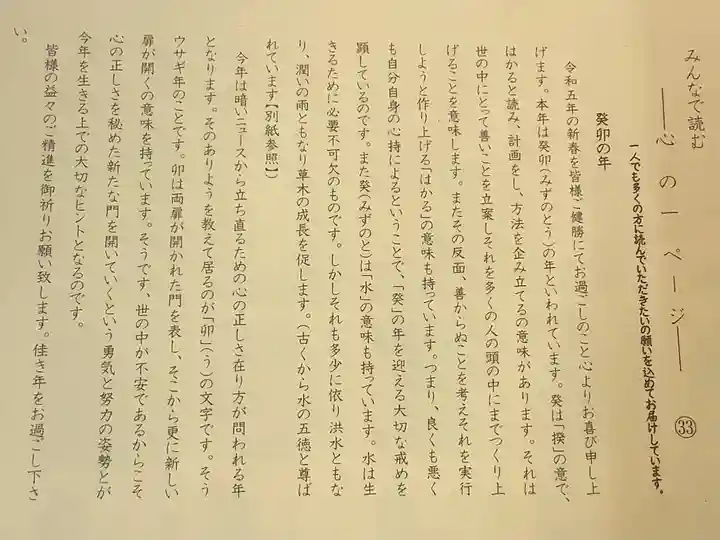 みんなで読む
――心の一ページ―― ㉝
一人でも多くの方に読んでいただきたいの願いを込めてお届けしています。
癸卯の年
令和五年の新春を皆様ご健勝にてお過ごしのこと心よりお喜び申し上
げます。本年は癸卯(みずのとう)の年といわれています。癸は「揆」の意で、
はかると読み、計画をし、方法を企み立てるの意味があります。それは
世の中にとって善いことを立案しそれを多くの人の頭の中にまでつくり上
げることを意味します。またその反面、善からぬことを考えそれを実行
しようと作り上げる「はかる」の意味も持っています。つまり、良くも悪く
も自分自身の心持によるということで、「癸」の年を迎える大切な戒めを
顕しているのです。また癸(みずのと)は「水」の意味も持っています。水は生
きるために必要不可欠のものです。しかしそれも多少に依り洪水ともな
り、潤いの雨ともなり草木の成長を促します。(古くから水の五徳と尊ば
れています【別紙参照】)
今年は暗いニュースから立ち直るための心の正しさ在り方が問われる年
となります。そのありようを教えて居るのが「卯」(う)の文字です。そう
ウサギ年のことです。卯は両扉が開かれた門を表し、そこから更に新しい
扉が開くの意味を持っています。そうです、世の中が不安であるからこそ
心の正しさを秘めた新たな門を開いていくという勇気と努力の姿勢とが
今年を生きる上での大切なヒントとなるのです。
皆様の益々のご精進を御祈りお願い致します。佳き年をお過ごし下さ
い。